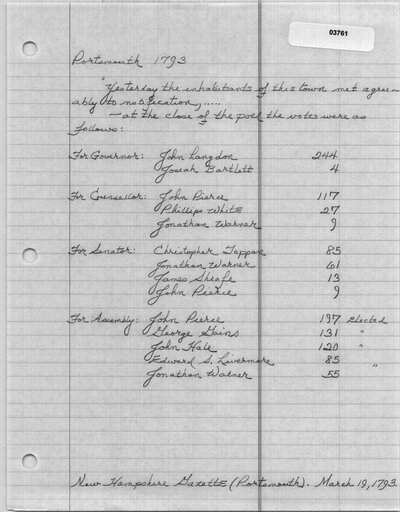 03761
Portsmouth 1793
"Yesterday the inhabitants of this town met agree-
ably to notification, .....
— at the close of the poll the votes were as
follows:
For Governor: John Langdon 244
Josiah Bartlett 4
For Counsellor: John Pierce 117
Phillips White 27
Jonathan Warner 9
For Senator: Christopher Toppan 85
Jonathan Warner 61
James Sheafe 13
John Pierce 9
For Assembly: John Pierce 197 Elected
George Gains 131 "
John Hale 120 "
Edward S. Livermore 85 "
Jonathan Warner 55
New Hampshire Gazette (Portsmouth). March 19, 1793.